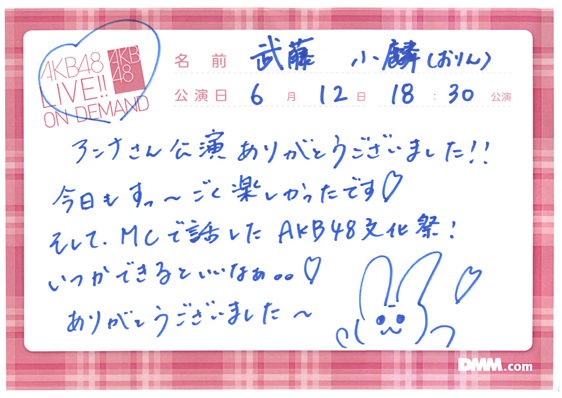 AKB48
LIVE!!
ON DEMAND
AKB
48
名前 武藤 小麟(おりん)
公演日 6月12日 18:30公演
アンナさん公演ありがとうございました!!
今日もすっ〜ごく楽しかったです♡
そして、MCで話したAKB48文化祭!
いつかできるといいなぁ。。♡
ありがとうございました〜
DMM.com